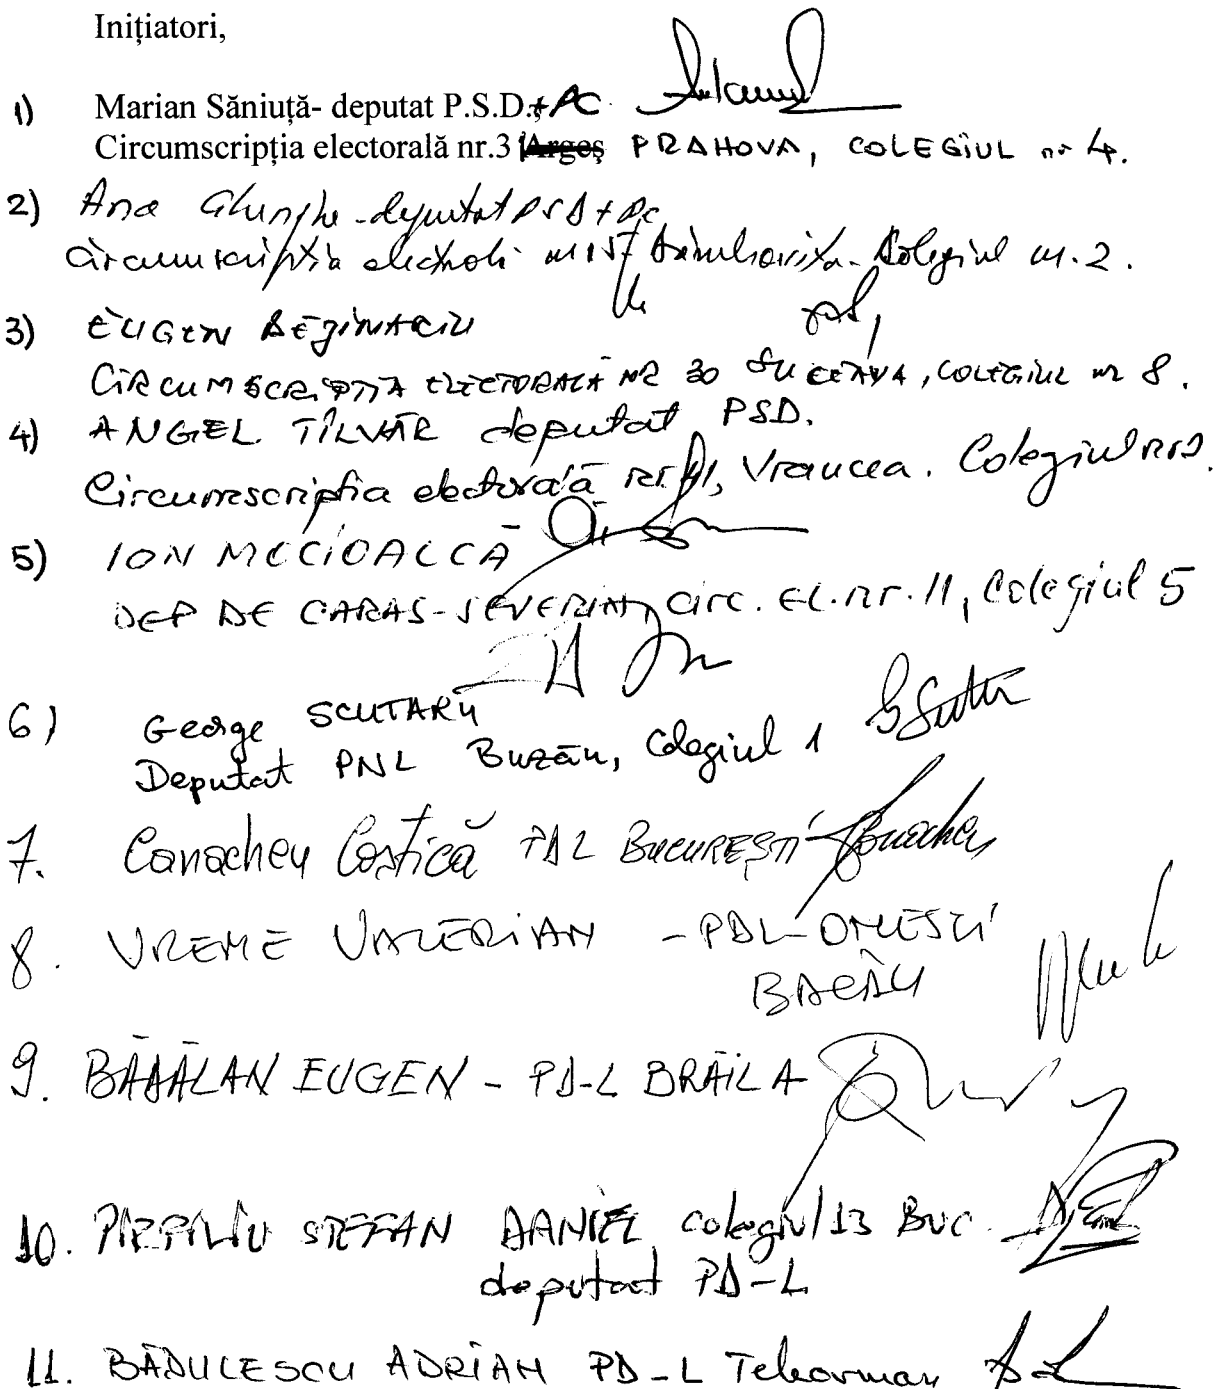 Inițiatori,
1) Marian Săniuță- deputat P.S.D.+PC
Circumscripția electorală nr.3 Argeș PRAHOVA, COLEGIUL nr 4.
2) Ana Gheorghe - deputat PSD + PC
Circumscripția electorală nr 15 Dâmbovița - Colegiul nr. 2.
3) EUGEN BEJINARIU
CIRCUMSCRIPȚIA ELECTORALĂ NR 30 SUCEAVA, COLEGIUL nr 8.
4) ANGEL TÎLVĂR deputat PSD.
Circumscripția electorală nr. 41, Vrancea. Colegiul nr
5) ION MOCIOALCĂ
DEP DE CARAS-SEVERIN, circ. El. nr. 11, Colegiul 5
6) George SCUTARU
Deputat PNL Buzău, colegiul 1
7. Canacheu Costică PDL BUCUREȘTI
8. VREME VALERIAN - PDL - ONEȘTI
BACĂU
9. BĂDĂLAN EUGEN - PD-L BRĂILA
10. PIRPILIU STEFAN DANIEL colegiul 13 BUC.
deputat PD-L
11. BĂDULESCU ADRIAN PD-L Teleorman